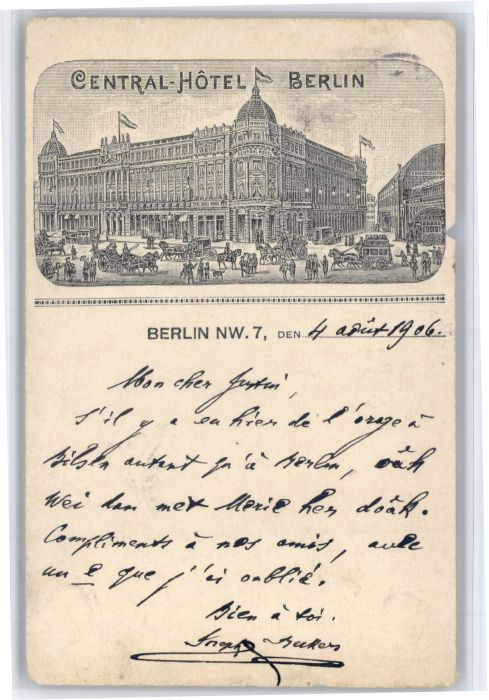 CENTRAL-HÔTEL BERLIN
BERLIN NW. 7, DEN 4 août 1906.
Mon cher Justin,
S'il y a eu hier de l'orage à
Bilsen autant qu'à Berlin, oûh
Wei dan met Merie her doâk.
Compliments à nos amis, avec
un e que j'ai oublié.
Bien à toi.
Joseph